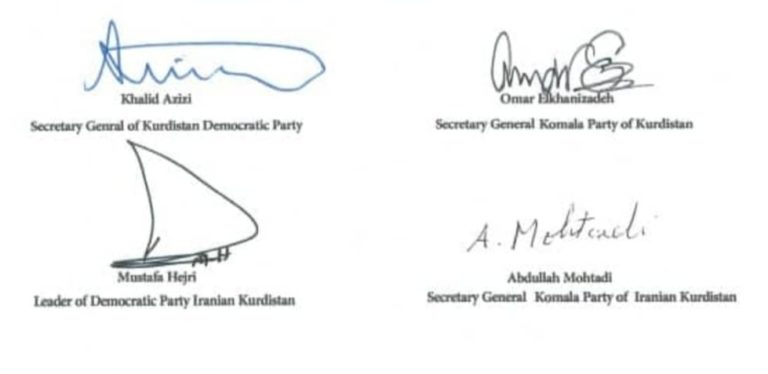 Azizi
Khalid Azizi
Secretary Genral of Kurdistan Democratic Party
Omar
Omar Elkhanizadeh
Secretary General Komala Party of Kurdistan
M-H
Mustafa Hejri
Leader of Democratic Party Iranian Kurdistan
A. Mohtadi
Abdullah Mohtadi
Secretary General Komala Party of Iranian Kurdistan